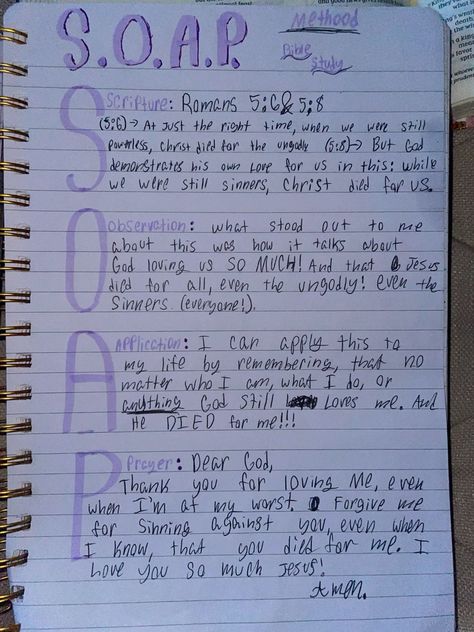 S.O.A.P.
Methood
Bible
Study
Scripture: Romans 5:6 & 5:8
(5:6) → At just the right time, when we were still
powrless, Christ died for the ungodly (5:8) → But God
demonstrates his own love for us in this: while
we were still sinners, Christ died for us.
Observation: what stood out to me
about this was how it talks about
God loving us SO MUCH! And that Jesus
died for all, even the ungodly! even the
Sinners (everyone!).
Application: I can apply this to
my life by remembering, that no
matter who I am, what I do, or
anything God still Loves me. And
He DIED for me!!!
Prayer: Dear God,
Thank you for loving Me, even
when I'm at my worst. Forgive me
for Sinning against you, even when
I know, that you died for me. I
Love you so much Jesus!
Amen.